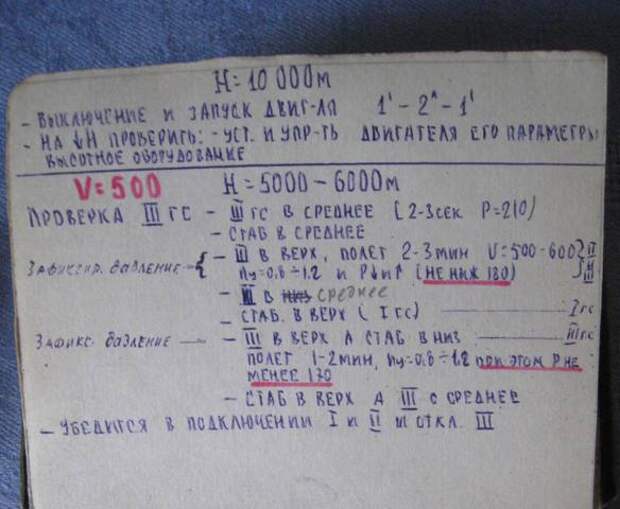 H = 10 000м
- ВЫКЛЮЧЕНИЕ И ЗАПУСК ДВИГ-ЛЯ 1' - 2^ - 1'
- НА ↓H ПРОВЕРИТЬ: - УСТ. И УПР-ТЬ ДВИГАТЕЛЯ ЕГО ПАРАМЕТРЫ
ВЫСОТНОЕ ОБОРУДОВАНИЕ
V=500 H = 5000 - 6000м
ПРОВЕРКА III ГС - III ГС В СРЕДНЕЕ (2-3сек P=210)
- СТАБ В СРЕДНЕЕ
ЗАФИКСИР. ДАВЛЕНИЕ - { - III В ВЕРХ, ПОЛЕТ 2-3 МИН V=500-600 } II
ny=0.8 ÷ 1.2 и P↓и↑ (НЕ НИЖ 130) III
- III В НИЗ СРЕДНЕЕ
- СТАБ. В ВЕРХ (I ГС) I ГС
ЗАФИКС. ДАВЛЕНИЕ - - III В ВЕРХ А СТАБ В НИЗ III ГС
ПОЛЕТ 1-2 МИН, ny=0.8 ÷ 1.2 ПРИ ЭТОМ P НЕ
МЕНЕЕ 130
- СТАБ В ВЕРХ А III С СРЕДНЕЕ
- УБЕДИТСЯ В ПОДКЛЮЧЕНИИ I И II И ОТКЛ. III